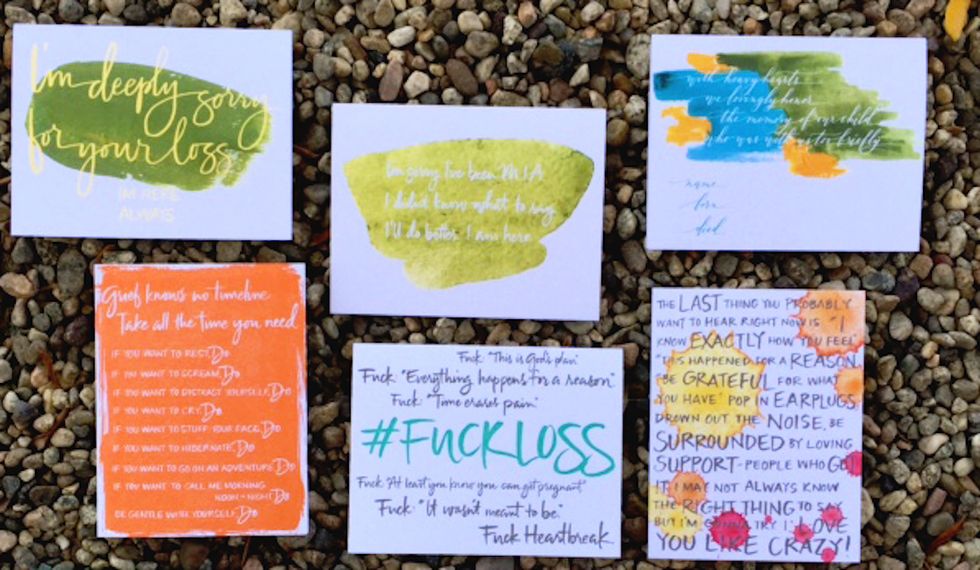 I'm deeply sorry
for your loss
I'M HERE
ALWAYS
I'm sorry I've been M.I.A
I didn't know what to say
I'll do better. I am here
with heavy hearts
we lovingly honor
the memory of our child
who was with us too briefly
name
born
died
Grief knows no timeline
Take all the time you need
IF YOU WANT TO REST, Do
IF YOU WANT TO SCREAM, Do
IF YOU WANT TO DISTRACT YOURSELF, Do
IF YOU WANT TO CRY, Do
IF YOU WANT TO STUFF YOUR FACE, Do
IF YOU WANT TO HIBERNATE, Do
IF YOU WANT TO GO ON AN ADVENTURE Do
IF YOU WANT TO CALL ME MORNING
NOON + NIGHT Do
BE GENTLE WITH YOURSELF, Do
Fuck "This is God's plan"
Fuck: "Everything happens for a reason"
Fuck: "Time erases pain"
#FUCKLOSS
Fuck "At least you know you can get pregnant"
Fuck: "It wasn't meant to be."
Fuck Heartbreak.
THE LAST THING YOU PROBABLY
WANT TO HEAR RIGHT NOW IS "I
KNOW EXACTLY HOW YOU FEEL"
"THIS HAPPENED FOR A REASON,
BE GRATEFUL FOR WHAT
YOU HAVE" POP IN EARPLUGS,
DROWN OUT THE NOISE, BE
SURROUNDED BY LOVING
SUPPORT-PEOPLE WHO GET
IT. I MAY NOT ALWAYS KNOW
THE RIGHT THING TO SAY
BUT I'M GONNA TRY I LOVE
YOU LIKE CRAZY!